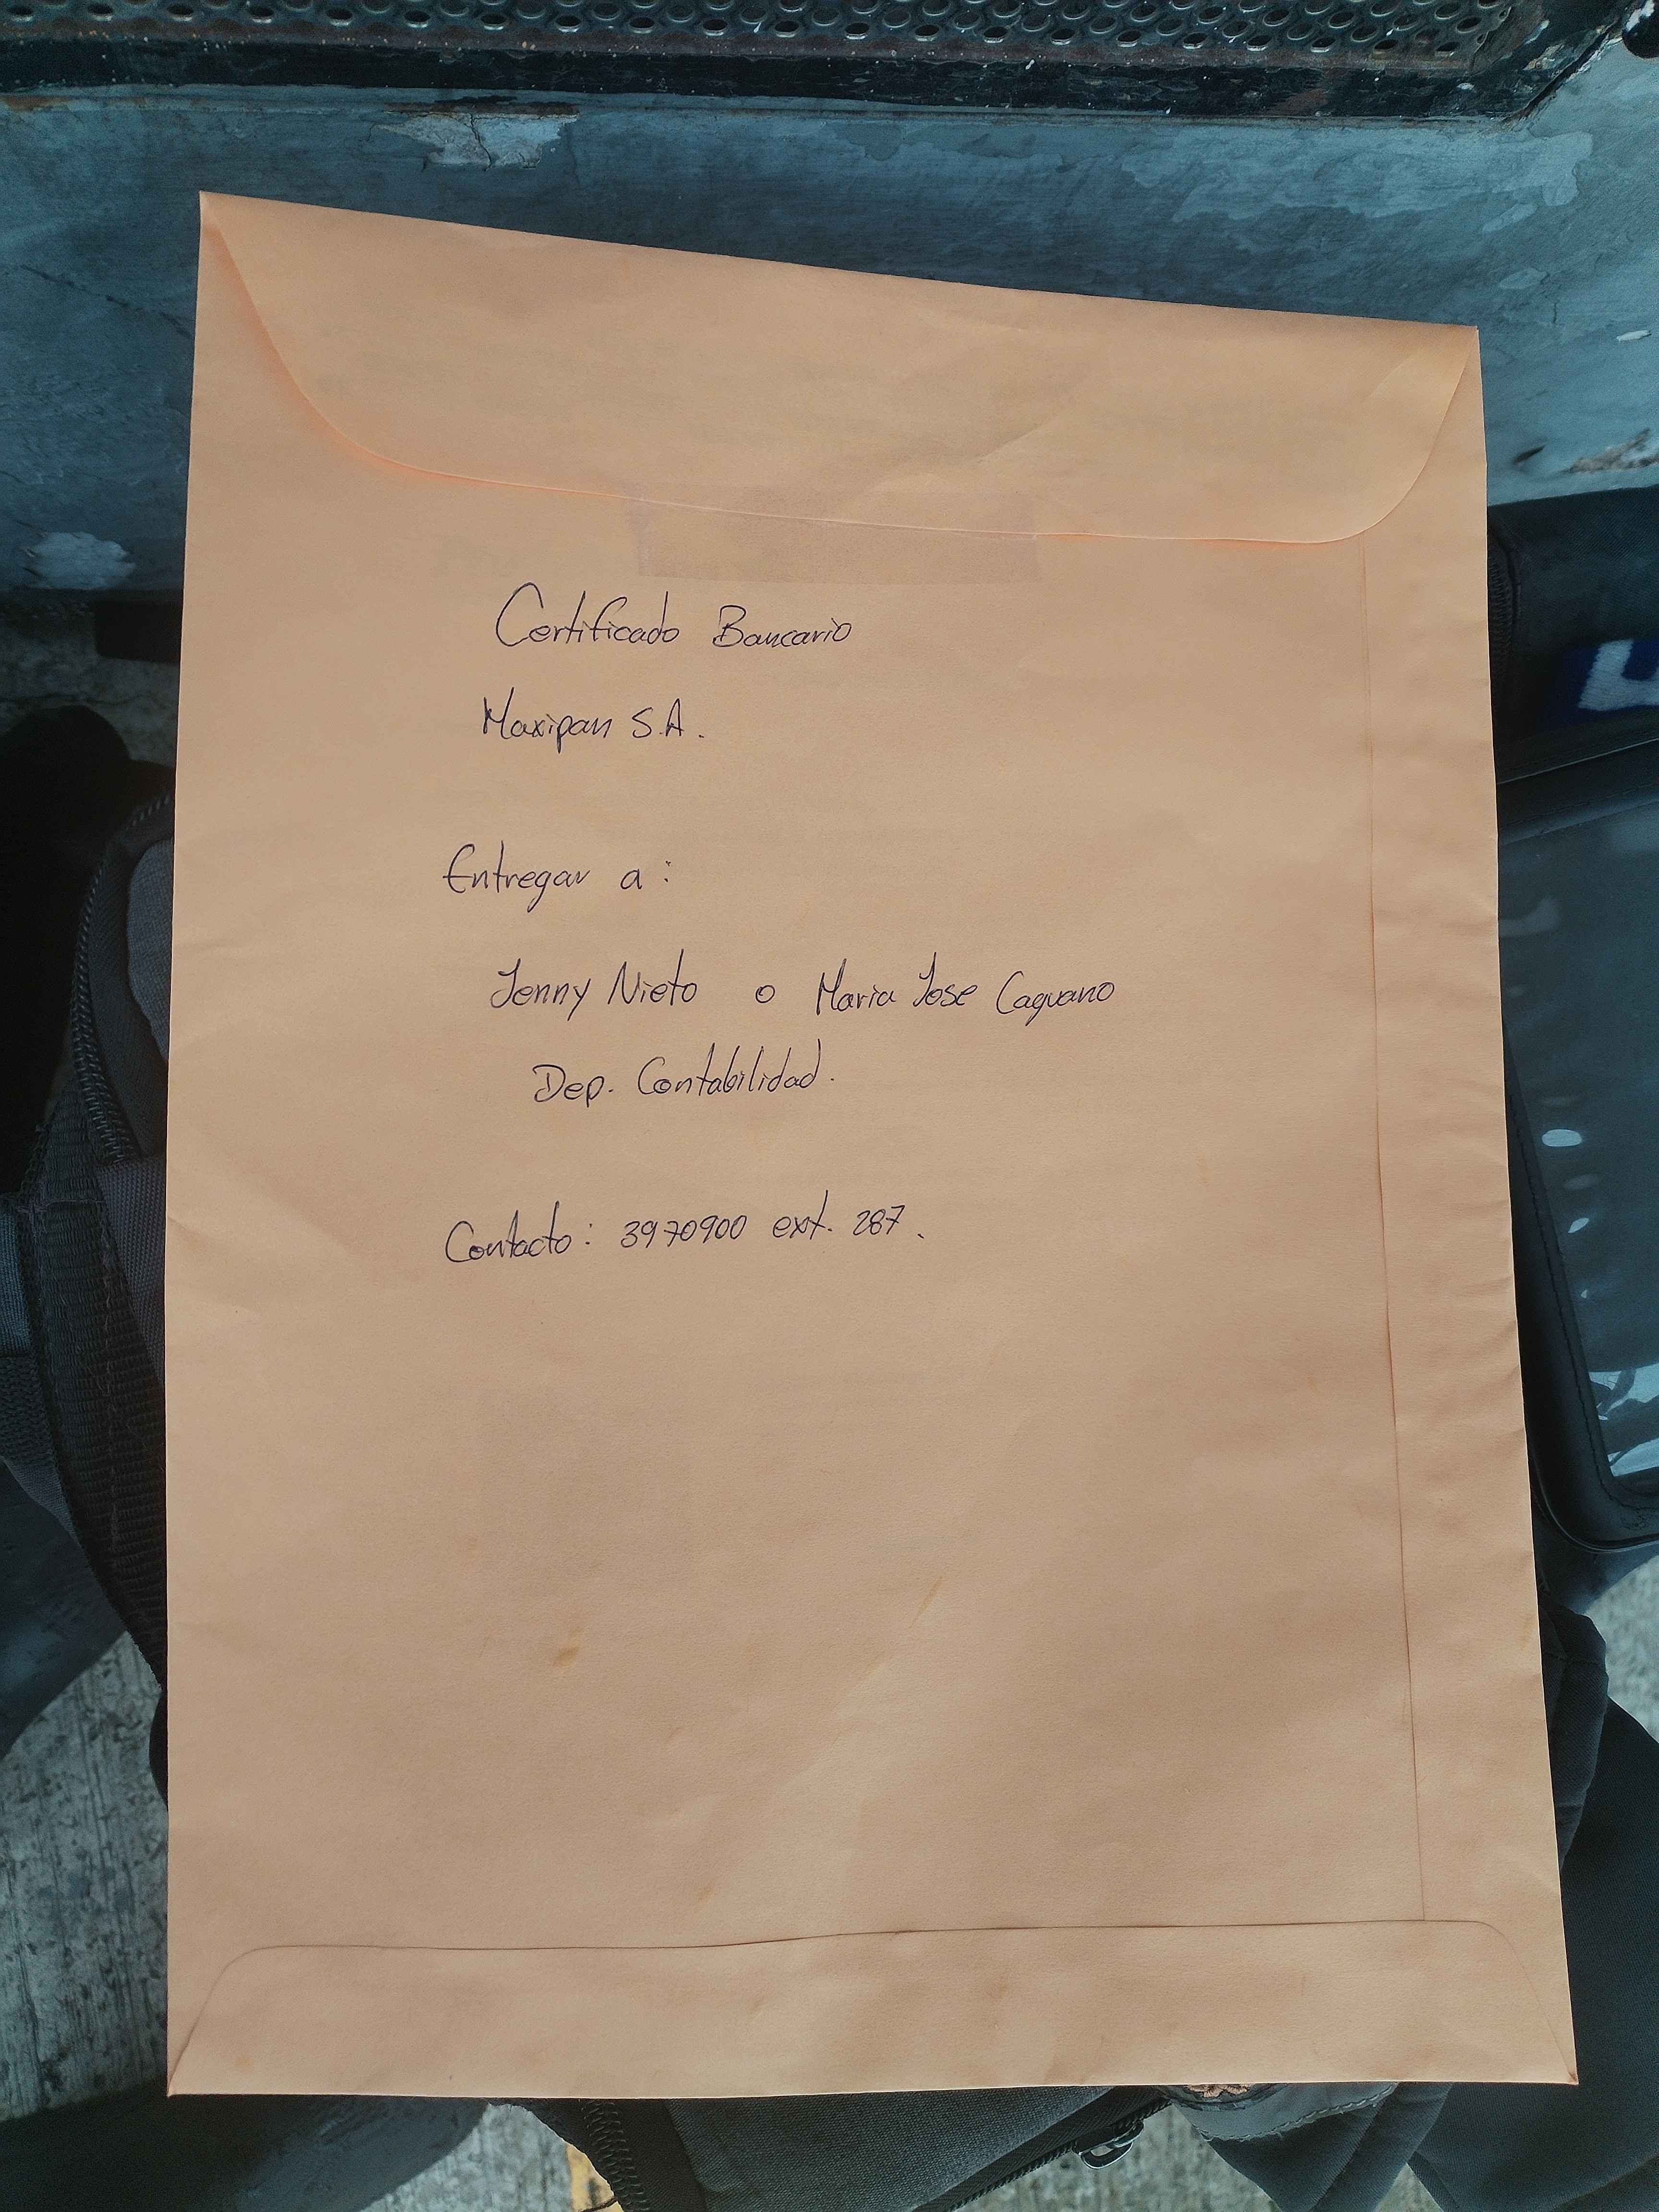 Certificado Bancario
Maxipan S.A.
Entregar a:
Jenny Nieto o Maria Jose Caguano
Dep. Contabilidad.
Contacto: 3970900 ext. 287.